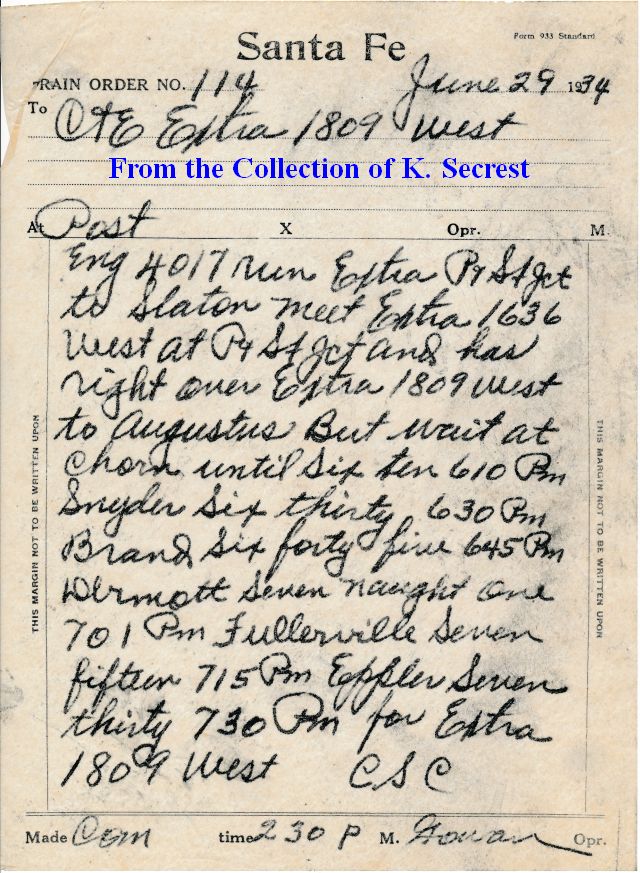 Form 933 Standard
Santa Fe
TRAIN ORDER NO. 114 June 29 1934
To C&E Extra 1809 West
From the Collection of K. Secrest
At Post X Opr. M
Eng 4017 run Extra Py St Jct
to Slaton meet Extra 1636
West at Py St Jct and has
right over Extra 1809 West
to Augustus But wait at
Chorn until Six ten 610 Pm
Snyder Six thirty 630 Pm
Brand Six forty five 645 Pm
Dermott Seven naught one
701 Pm Fullerville Seven
fifteen 715 Pm Eppler Seven
thirty 730 Pm for Extra
1809 West CSC
THIS MARGIN NOT TO BE WRITTEN UPON
THIS MARGIN NOT TO BE WRITTEN UPON
Made Com time 230 P M. Gowan Opr.